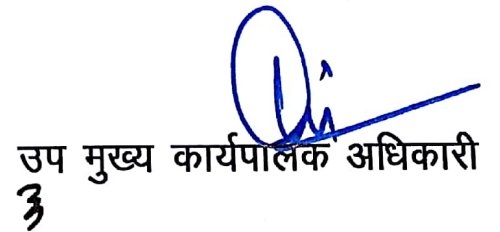 उप मुख्य कार्यपालक अधिकारी